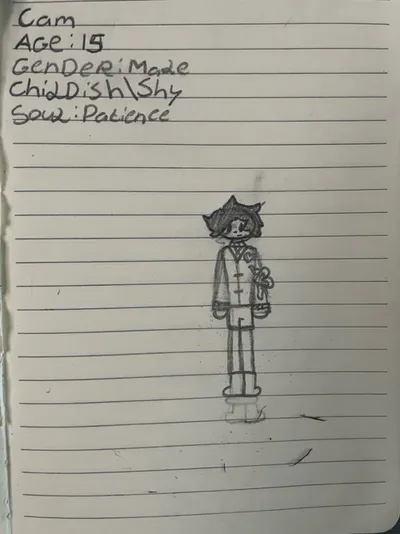 Cam
Age: 15
Gender: Male
Childish\Shy
Soul: Patience